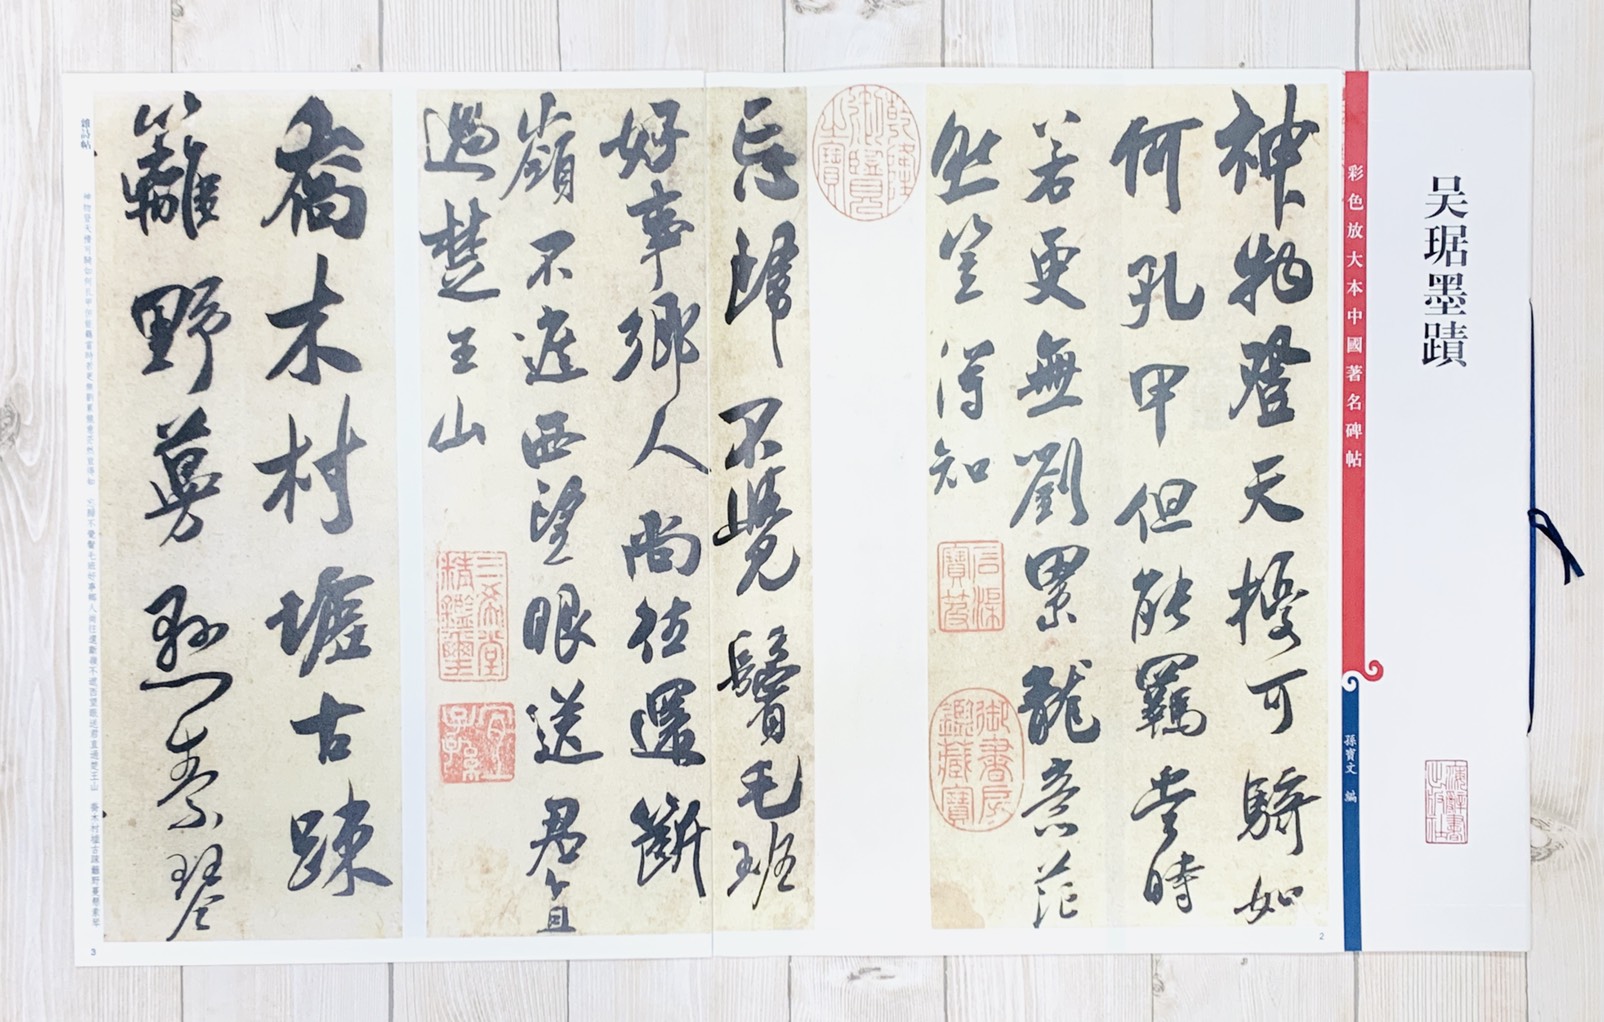 吴琚墨蹟
彩色放大本中國著名碑帖
孫寶文 編
神物登天擾可騎如
何孔甲但能羈當時
若更無劉累龍意茫
然豈得知
乾隆御覽之寶
御書房鑑藏寶
2
忘歸不覺鬢毛班
好事鄉人尚往還斷
嶺不遮西望眼送君直
過楚王山
三希堂精鑑璽
宜子孫
喬木村墟古疎
籬野蔓懸素琴
雜詩帖
3